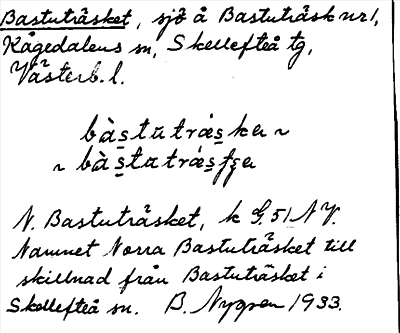 Bastuträsket, sjö å Bastuträsk nr 1,
Kågedalens sn, Skellefteå tg,
Västerb. l.
bàs̱tutrǽs̱ka ~
~ bàs̱tatrǽs̱
N. Bastuträsket, k G. 51 NV.
Namnet Norra Bastuträsket till
skillnad från Bastuträsket i
Skellefteå sn. B. Nygren 1933.